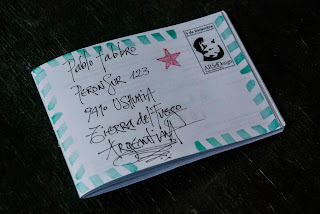 Pablo Fabbro
Perón Sur 123
9410 USHUAIA
Tierra del Fuego
ARGENTINA